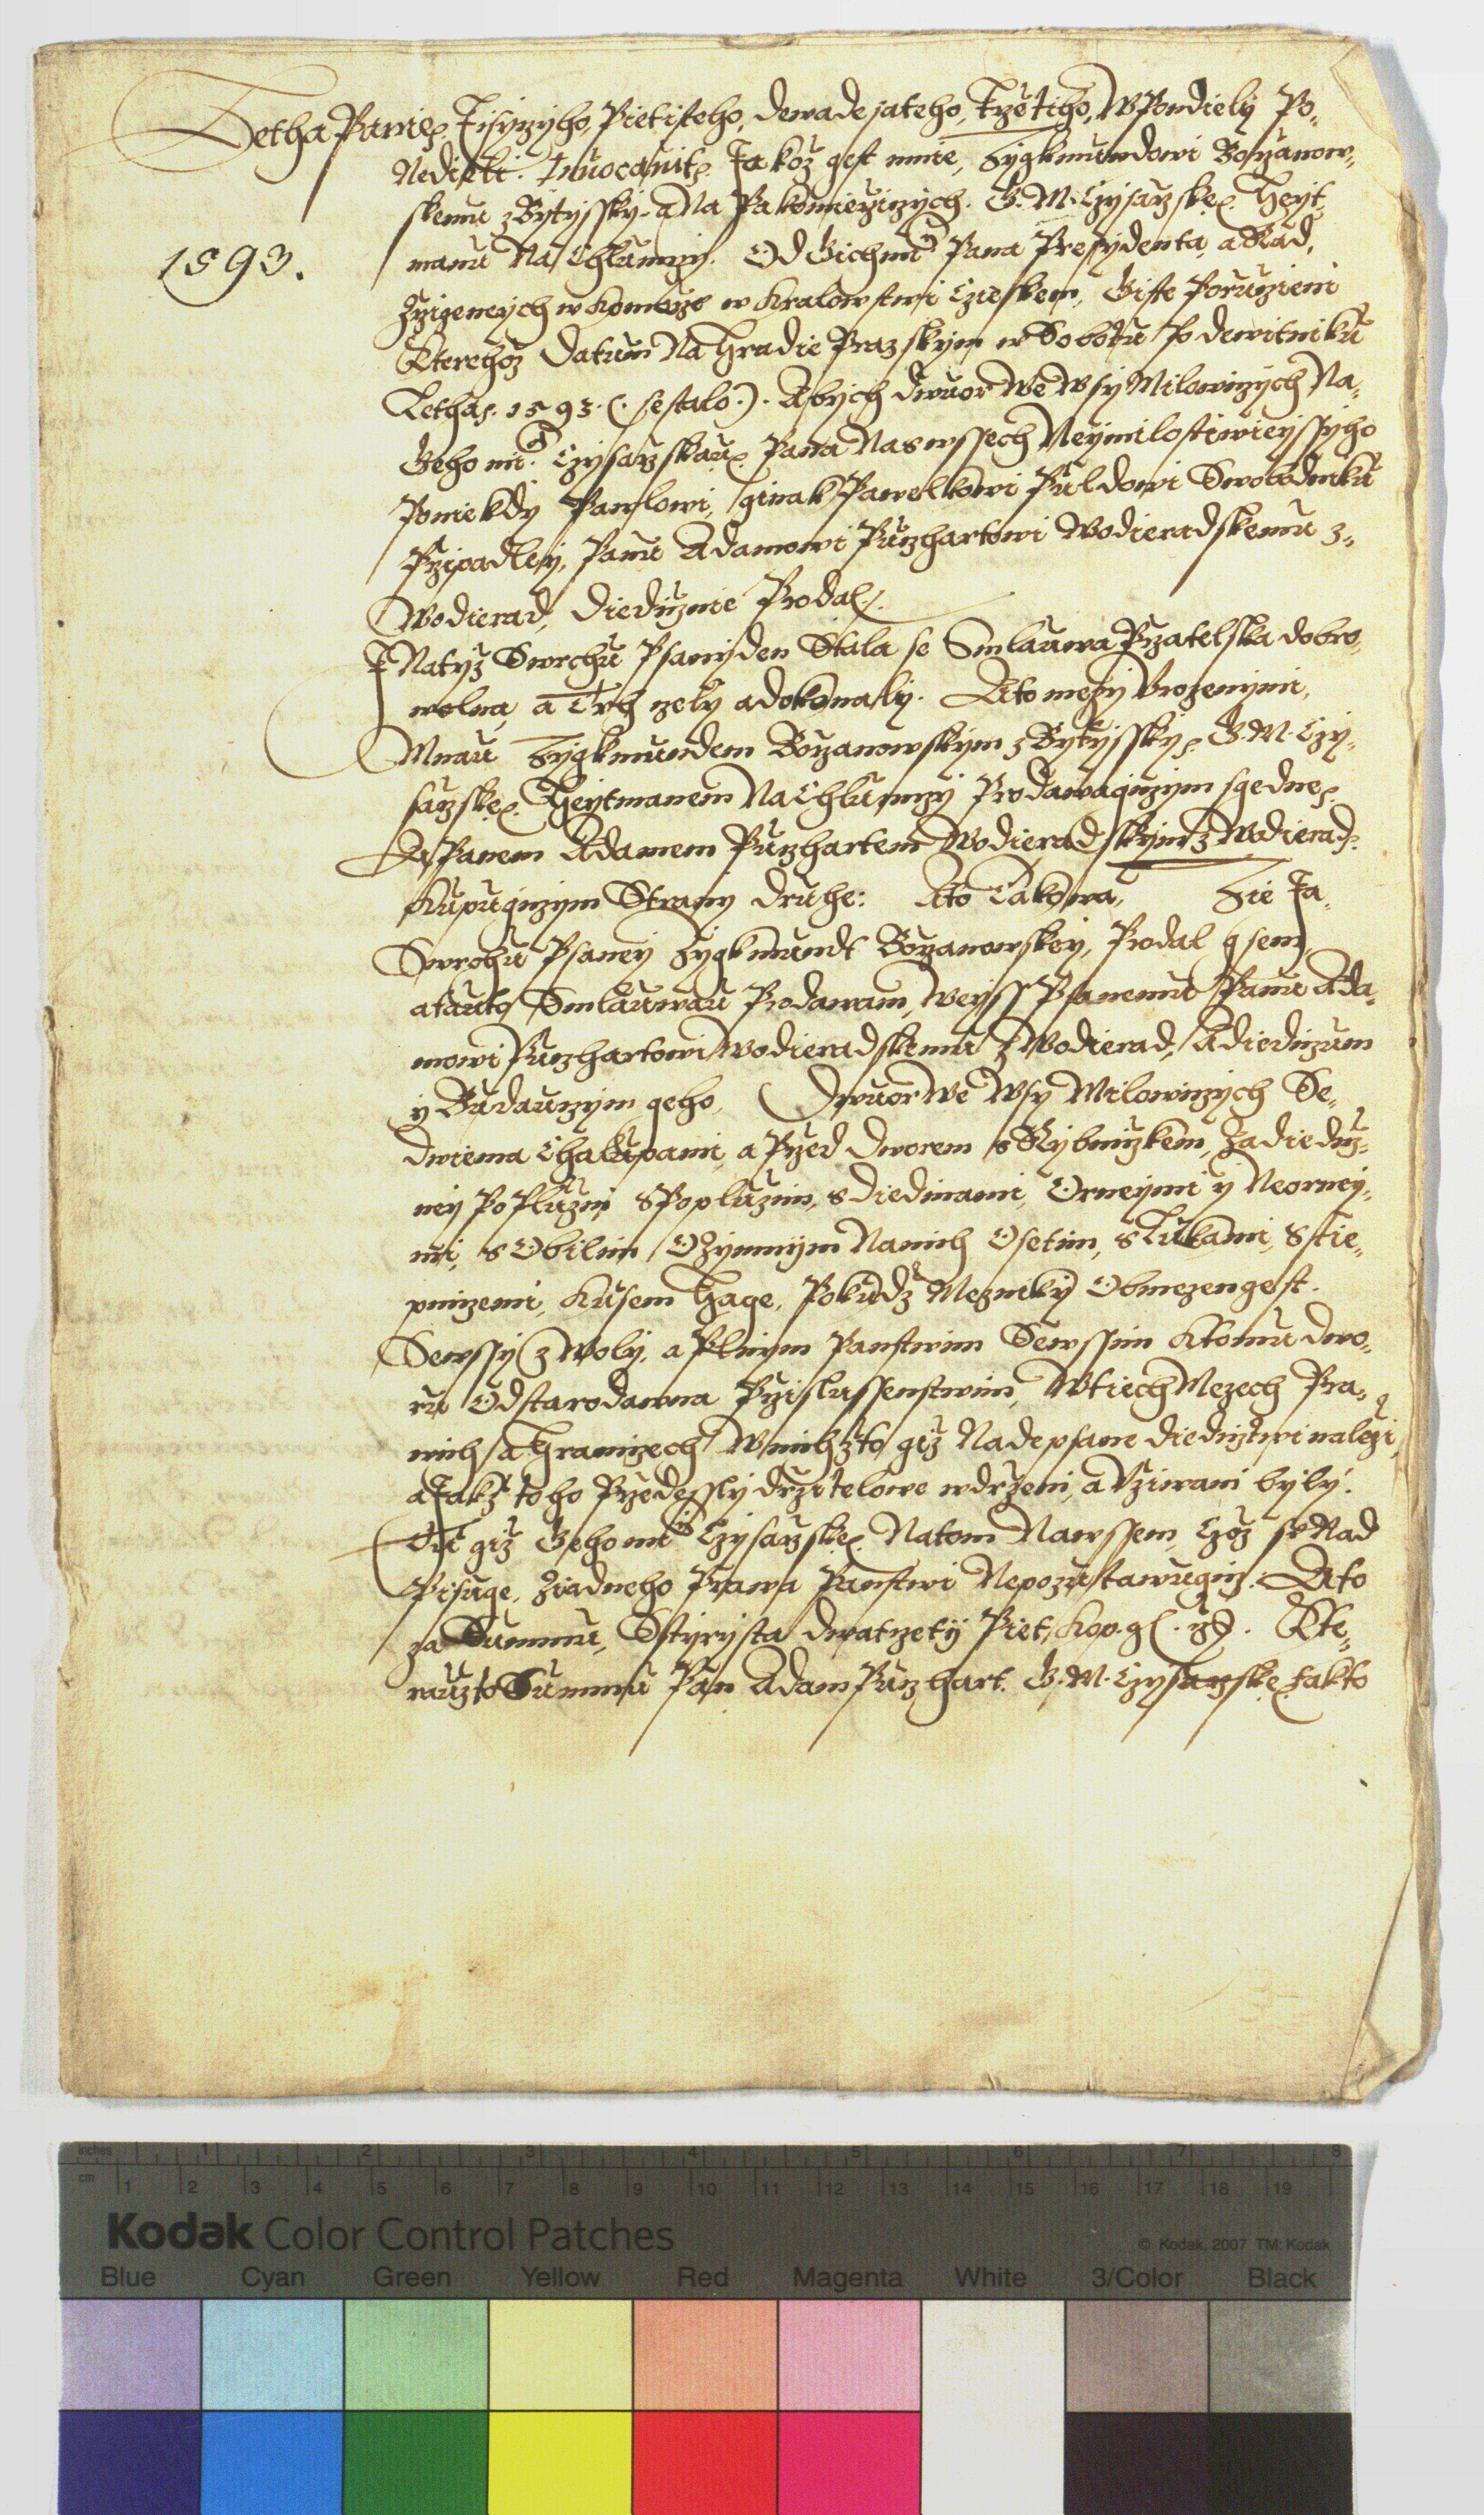 Letha Panie. Tisyczyho, Pietisteho, dewadesateho, Trzetiho, W Pondiely Po,
Nedieli. Inuocauit. Jakoz gest mnie, Zygkmundowi Bozanow,,
skemu z Bytysky. a Na Pakomierzyczych. G. M. Czysarzske. Heyt,
manu Na Chlumczy. Od Gich mti Pana Presydenta, a Rad,
1593.
Zrzizeneych w Komorze w Kralowstwi Czieskem, Giste Poruczieni
Kterehoz Datum Na Hradie Prazskym w Sobotu Po dewitniku
Letha. 1593. (. sestalo.). Abych dwuor We Wsy Milowiczych Na,
Geho mt. Czysarzskau. Pana Nas wssech Neymilostiwieyssyho
Po niekdy Pawlowi, ginak Pawelkowi Puldowi Swobodniku
Przipadley, Panu Adamowi Puczhartowi Wodieradskemu z,,
Wodierad, Diedicznie Prodal.
Natyz Swrchu Psaney den Stala se Smlauwa Przatelska dobro,
wolna, a Trh czely a dokonaly. A to mezy Urozenymi,
Mnau Zygkmundem Bozanowskym z Bytysky. G. M. Czy,
sarzske. Heytmanem Na Chlumczy Prodawagiczym s gedne.
A Panem Adamem Puczhartem Wodieradskym z Wodierad.
Kupugiczym Strany druhe: A to Takowa, Zie Ja,
Swrchu Psaney Zygkmundt Bozanowskey, Prodal gsem,
a tauto Smlauwau Prodawam, Weyss Psanemu Panu Ada,
mowi Puczhartowi Wodieradskemu z Wodierad, A diediczum
y Budauczym geho, Dwuor We Wsy Milowiczych Se,
dwiema Chalupami, a Przed dworem s Rybniczkem, Za diedicz,
ney Po Pluzni s Popluzim, s diedinami, Orneymi y Neorney,
mi, s Obilim Ozymnym Na nich Osetim, s Lukami, Stie,,
pniczemi, Kusem Hage, Pokudz Mezniky Obmezen gest.
Se wssy z Woly, a Plnym Panstwim Se wssim K tomu dwo,
ru Od starodawna Przislussenstwim, W tiech Mezech Pra,
nich a Hraniczech W nichzto giz Nadepsane diediczstwi nalezi,
a Jakz toho Przedessly drzitelowe w drzeni, a Uziwani byly.
Giz Geho mti Czysarzske. Na tom Na wssem, Czoz se Nad
Pisuge, Ziadneho Prawa Panstwi Nepozustawugicz. A to
za Summu, Sstyrysta dwatczety Piet, Kop. g. cz. Kte,
rauzto Summu Pan Adam Puczhart. G. M. Czysarzske takto